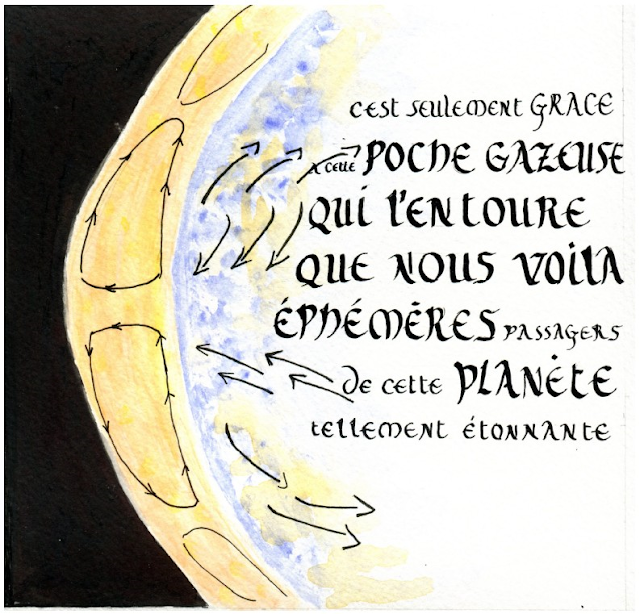 C'EST SEULEMENT GRACE
A CETTE POCHE GAZEUSE
QUI L'ENTOURE
QUE NOUS VOILA
ÉPHÉMÈRES PASSAGERS
DE CETTE PLANÈTE
TELLEMENT ÉTONNANTE